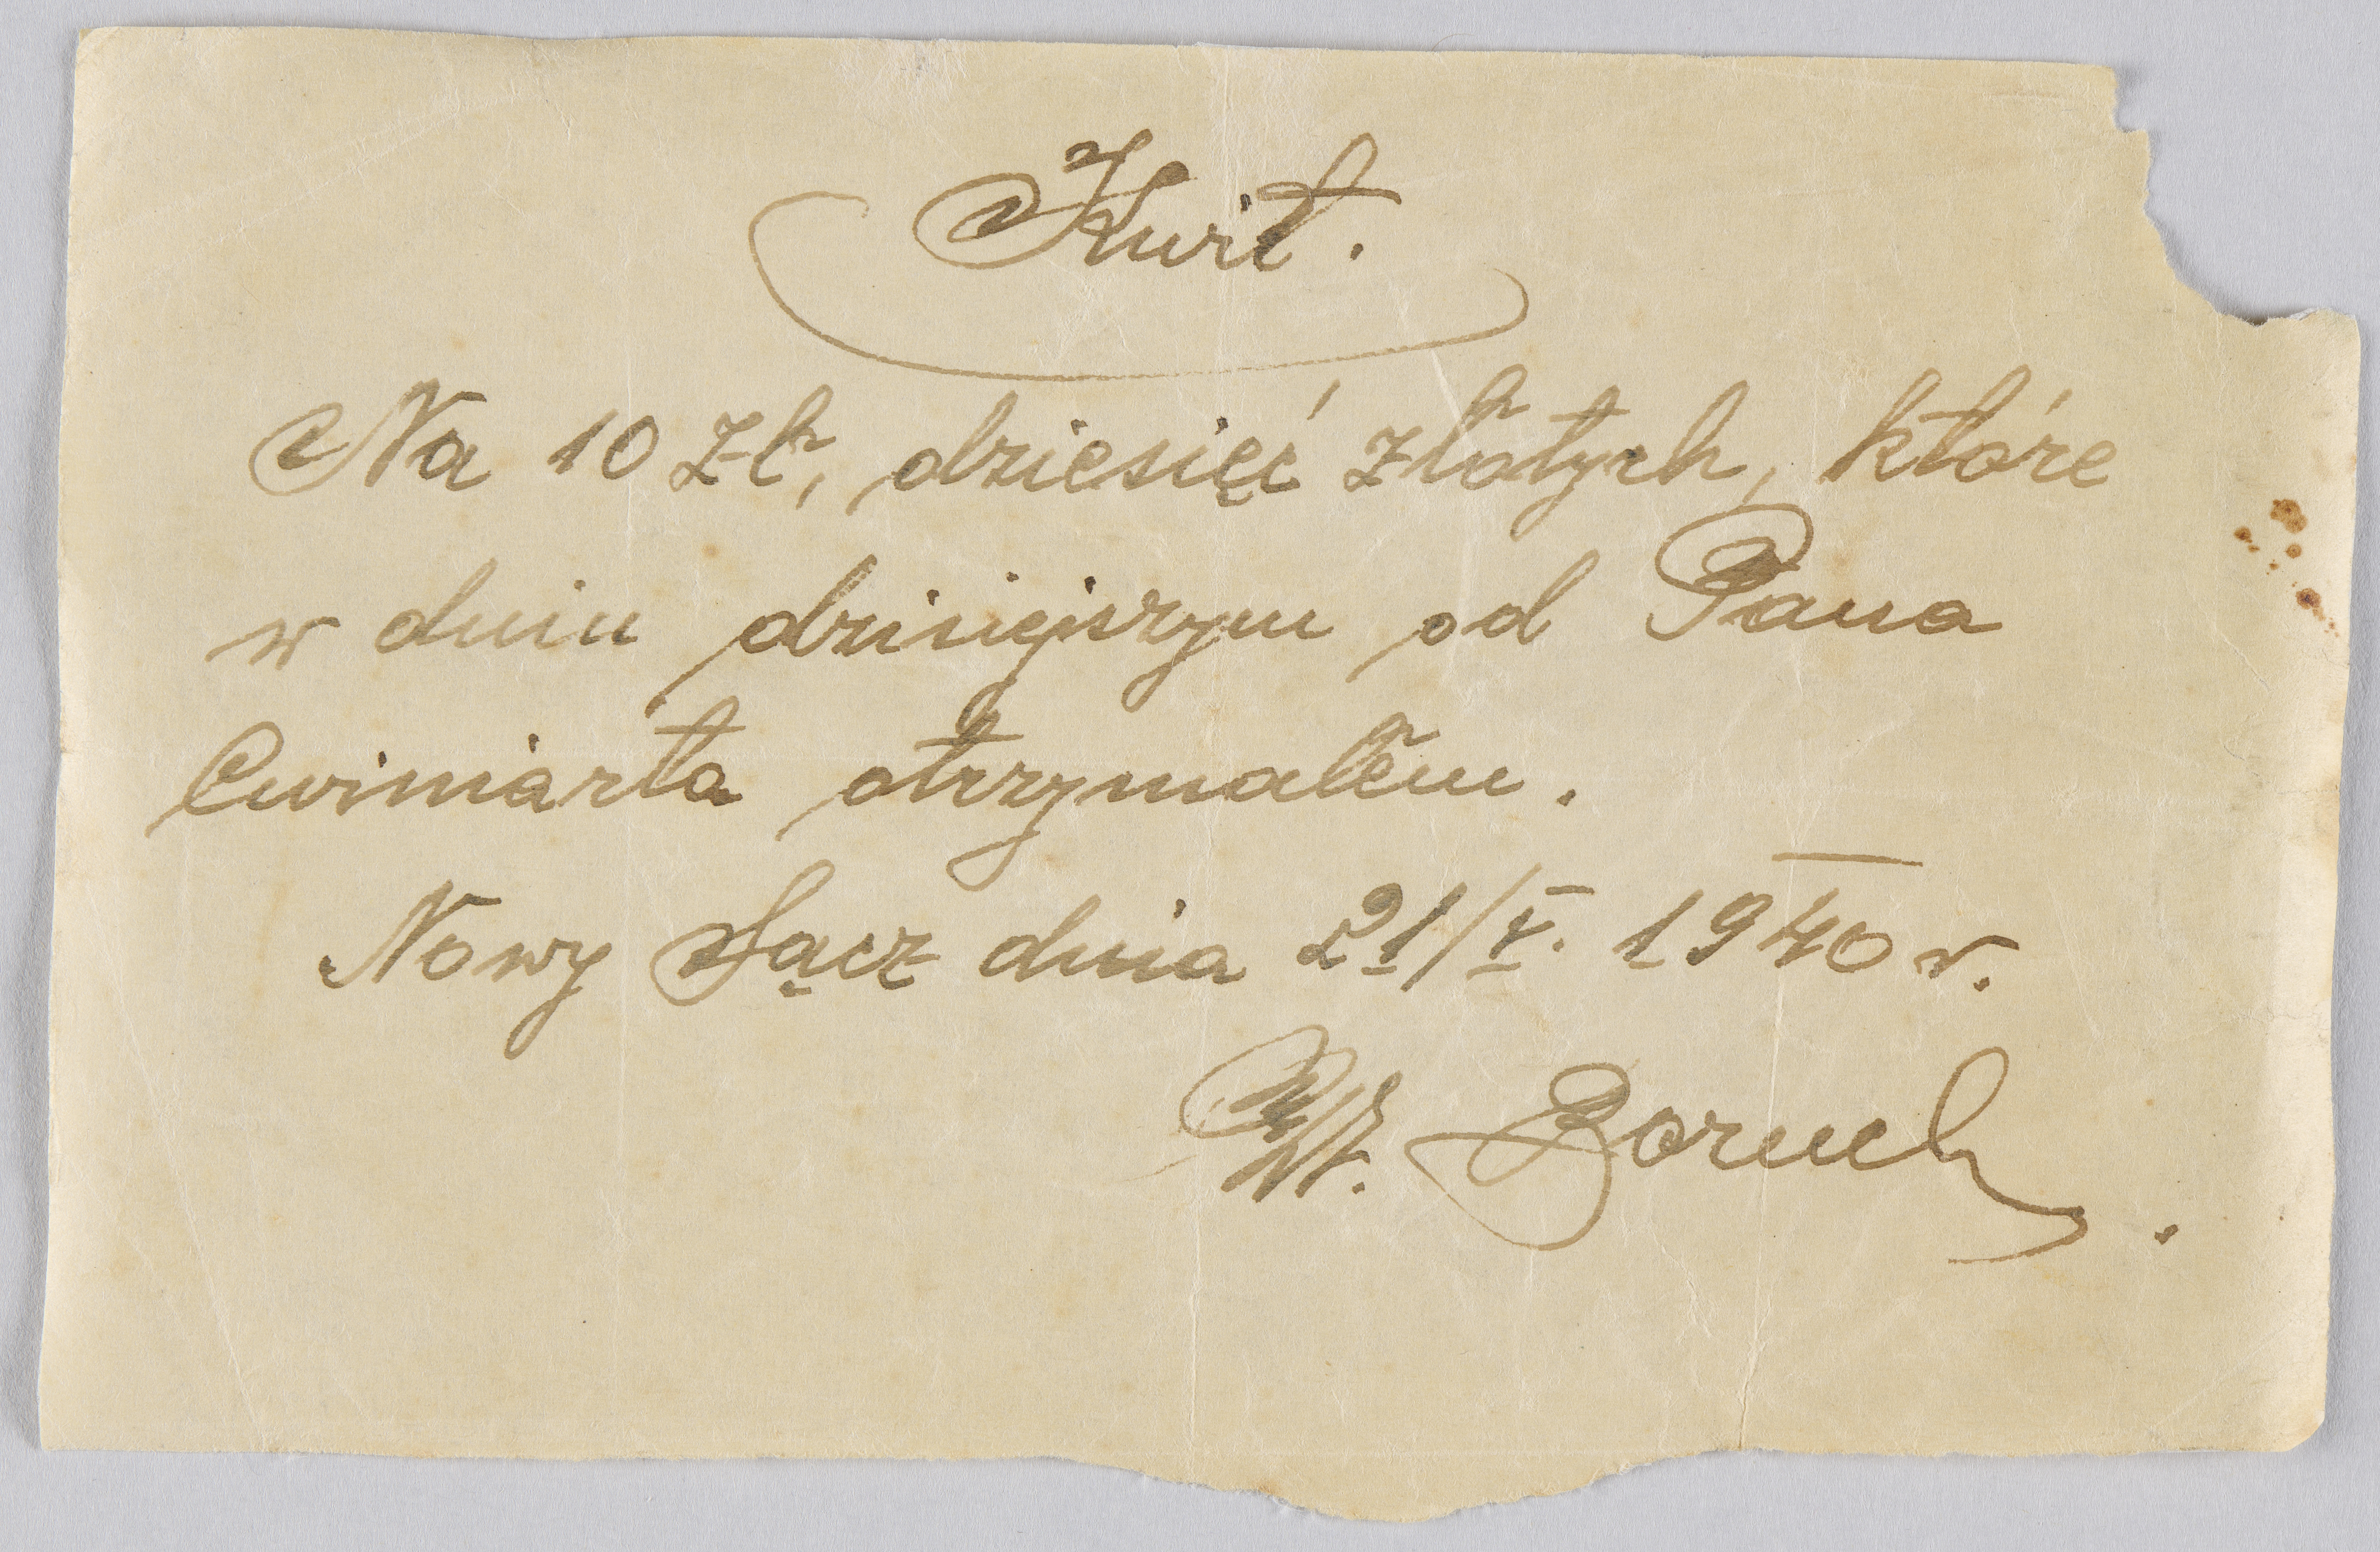 Kwit.
Na 10 zł, dziesięć złotych, które
w dniu dzisiejszym od Pana
Cwiniarta otrzymałem.
Nowy Sącz dnia 21/V. 1940 r.
Boruch.